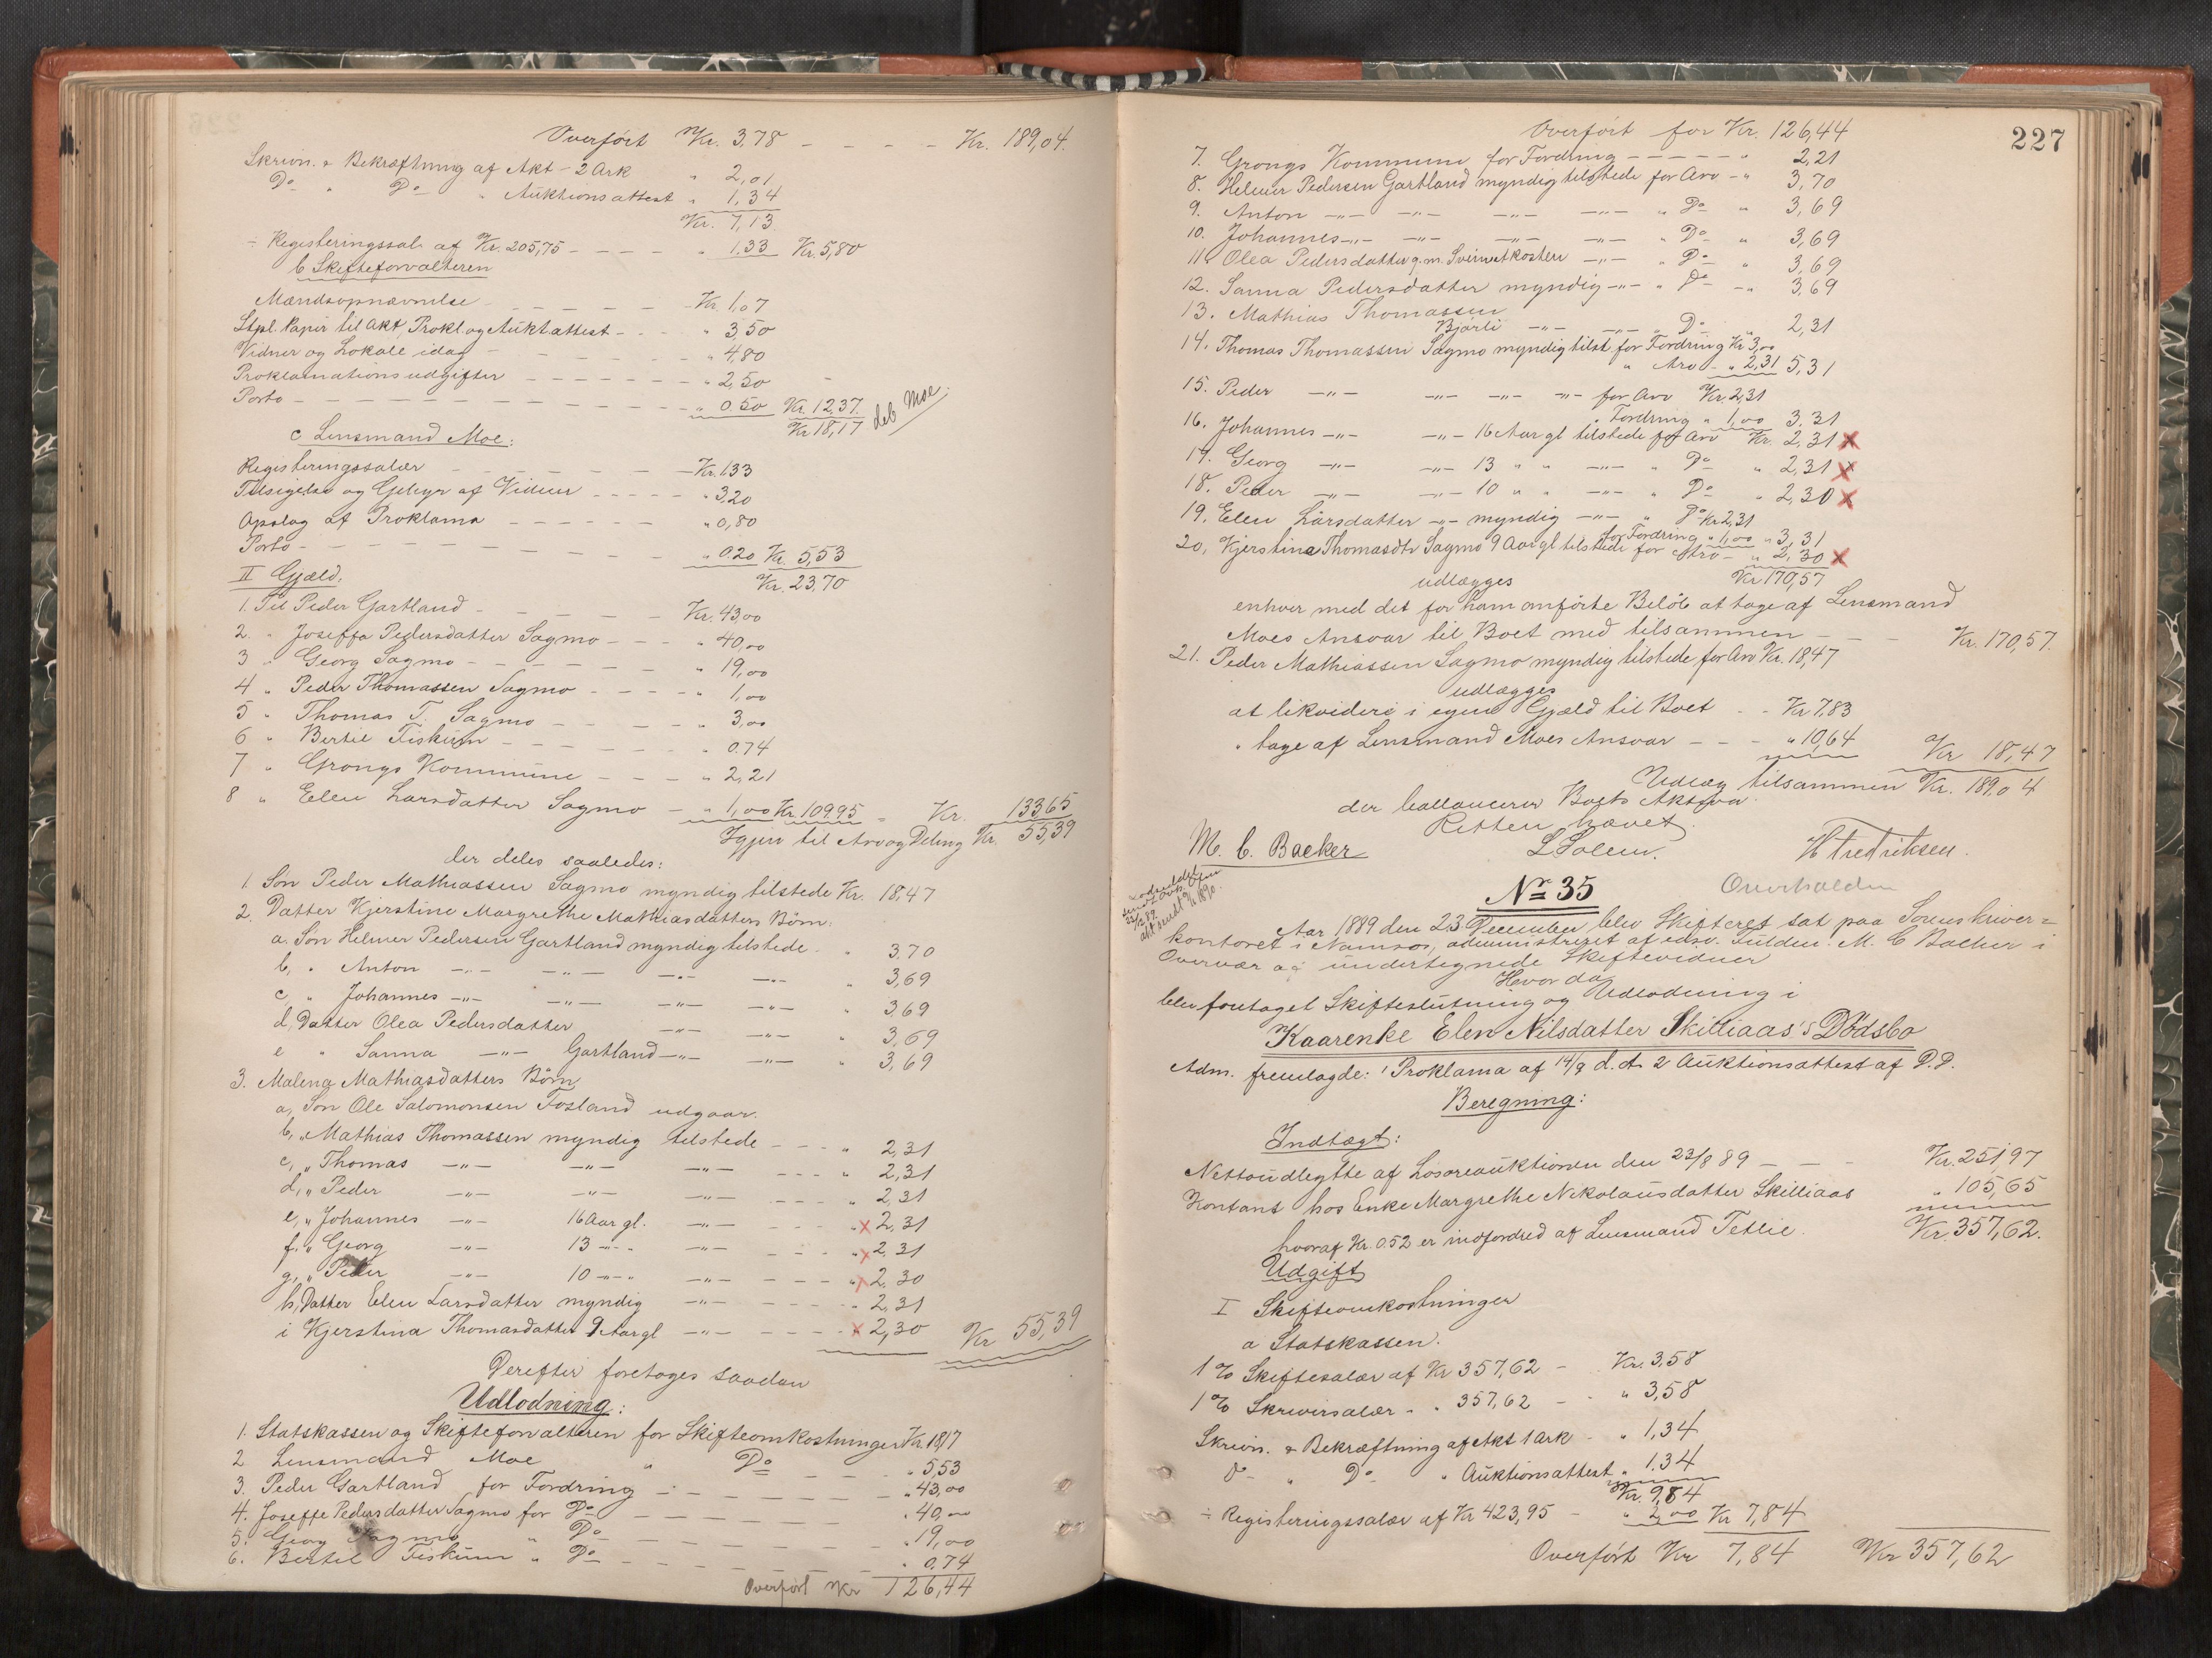 Overført Kr. 3,78 - - - - Kr. 189,04.
Skrivn. & Bekræftning af Akt - 2 Ark " 2,01
Do " Do " Auktionsattest " 1,34
Kr. 7,13
÷ Registreringssal. af Kr. 205,75 - - - - " 1,33 Kr. 5,80
b Skifteforvalteren
Mændsopnævnelse - - - - - Kr. 1,07
Stpl. Papir til Akt, Prokl. og Auktattest - - " 3,50
Vidner og Lokale idag - - - - - " 4,80
Proklamationsudgifter - - - - - " 2,50
Porto - - - - - - - - " 0.50 Kr. 12,37.
Kr 18,17 deb Moe.
c Lensmand Moe:
Registeringssalær - - - - - Kr. 1.33
Tilsigelse og Gebyr af Vidner - - - - " 3,20
Opslag af Proklama - - - - - " 0,80
Porto - - - - - - - - " 0.20 Kr. 5,53
Kr. 23,70
II Gjæld.
1. Til Peder Gartland - - - - - Kr. 43,00
2. " Joseffa Pedersdatter Sagmo - - - " 40,00
3 " Georg Sagmo - - - - - - " 19,00
4 " Peder Thomassen Sagmo - - - - " 1,00
5 " Thomas T. Sagmo - - - - - " 3,00
6 " Bertil Fiskum - - - - - " 0.74
7 " Grongs Kommune - - - - " 2,21
8 " Elen Larsdatter Sagmo - " 1,00 Kr. 109.95 - Kr. 133,65
Igjen til Arv og Deling Kr. 55,39
der deles saaledes:
1. Søn Peder Mathiassen Sagmo myndig tilstede Kr. 18,47
2. Datter Kjerstine Margrethe Mathiasdatters Børn:
a. Søn Helmer Pedersen Gartland myndig tilstede " 3.70
b, " Anton -"- -"- -"- -"- " 3,69
c, " Johannes -"- -"- -"- -"- " 3,69
d, Datter Olea Pedersdatter -"- -"- " 3,69
e " Sanna -"- Gartland -"- -"- " 3,69
3. Malena Mathiasdatters Børn:
a, Søn Ole Salomonsen Fosland udgaar.
b, " Mathias Thomassen myndig tilstede - - - " 2,31
c, " Thomas -"- -"- -"- - - - " 2,31
d, " Peder -"- -"- -"- - - - " 2,31
e, " Johannes -"- 16 Aar gl. -"- " x 2,31
f. " Georg -"- 13 -"- " -"- - - - " x 2,31
g, " Peder -"- 10 -"- " -"- - - - " x 2,30
h, Datter Elen Larsdatter myndig -"- - - - " 2,31
i Kjerstina Thomasdatter 9 Aar gl -"- - - - - x 2,30 Kr 55,39
Derefter foretoges saadan
Udlodning:
1. Statskassen og Skifteforvalteren for Skifteomkostninger Kr. 18,17
2 Lensmand Moe " Do - - - " 5,53
3. Peder Gartland for Fordring - - - - - - " 43,00
4. Joseffe Pedersdatter Sagmo for Do - - - - - " 40,00
5. Georg Sagmo " Do - - - - - - " 19,00
6. Bertil Fiskum " Do - - - - - - " 0,74
Overført Kr 126,44
227
Overført for Kr. 126,44
7. Grongs Kommune for Fordring - - - - - " 2,21
8. Helmer Pedersen Gartland myndig tilstede for Arv - " 3,70
9. Anton -"- -"- -"- -"- " Do " 3,69
10. Johannes -"- -"- -"- -"- " Do " 3,69
11. Olea Pedersdatter g. m. -"- " Do " 3,69
12. Sanna Pedersdatter myndig -"- " Do - " 3,69
13. Mathias Thomassen
Bjørli -"- -"- " Do " 2,31
14. Thomas Thomassen Sagmo myndig tilst. for Fordring Kr 3,00
" Arv - " 2,31 5,31
15. Peder -"- -"- -"- -"- for Arv Kr. 2,31
" Fordring " 1,00 3,31
16. Johannes -"- -"- 16 Aar gl tilstede for Arv Kr. 2,31 x
17. Georg -"- -"- 13 " " -"- " Do " 2,31 x
18. Peder -"- -"- 10 " " -"- " Do " 2,30 x
19. Elen Larsdatter -"- myndig -"- " Do Kr 2,31
for Fordring " 1,00 " 3,31
20. Kjerstina Thomasdtr Sagmo 9 Aar gl tilstede for Arv - " 2,30 x
udlægges Kr 170,57
enhver med det for ham anførte Beløb at tage af Lensmand
Moes Ansvar til Boet med tilsammen - - - Kr. 170,57.
21. Peder Mathiassen Sagmo myndig tilstede for Arv Kr. 18,47
udlægges
at likvidere i egen Gjæld til Boet - - Kr 7,83
" tage af Lensmand Moes Ansvar - - - " 10,64
Kr 18,47
Udlæg tilsammen Kr. 189,04
der ballancerer Boets Aktiva.
Retten hævet.
M. C. Backer LSolem. H Fredriksen.
No 35 Overhalden
Aar 1889 den 23 December blev Skifteret sat paa Sorenskriver=
kontoret i Namsos, administreret af edsv. Fuldm. M. C Backer i
Overvær af undertegnede Skiftevidner
Hvor da
blev foretaget Skifteslutning og Udlodning i
Kaarenke Elen Nilsdatter Skilliaas's Dødsbo
Adm. fremlagde: 1 Proklama af 14/9 d. A. 2 Auktionsattest af D. D.
Beregning:
Indtægt:
Nettoudbytte af Løsøreauktionen den 23/8 89 - - - Kr. 251,97
Kontant hos Enke Margrethe Nikolausdatter Skilliaas " 105,65
Kr. 357,62.
hvoraf Kr. 0.52 er indfordred af Lensmand Tetlie.
Udgift
I Skifteomkostninger
a Statskassen.
1 % Skiftesalær af Kr 357,62 - Kr. 3,58
1 % Skriversalær " " 357,62 - " 3,58
Skrivn. & Bekræftning af Akt 1 Ark - " 1,34
Do " Do " Auktionsattest " 1.34
Kr. 9,84
÷ Registreringssalær af Kr 423,95 - " 2,00 Kr 7,84
Overført Kr 7,84 Kr 357,62